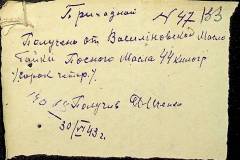 Приходной № 47
Получено от Василиновской Масло
бойки Посного Масла 44 килогр
/сорок четыр/.
Получив
30/VI 43 г.